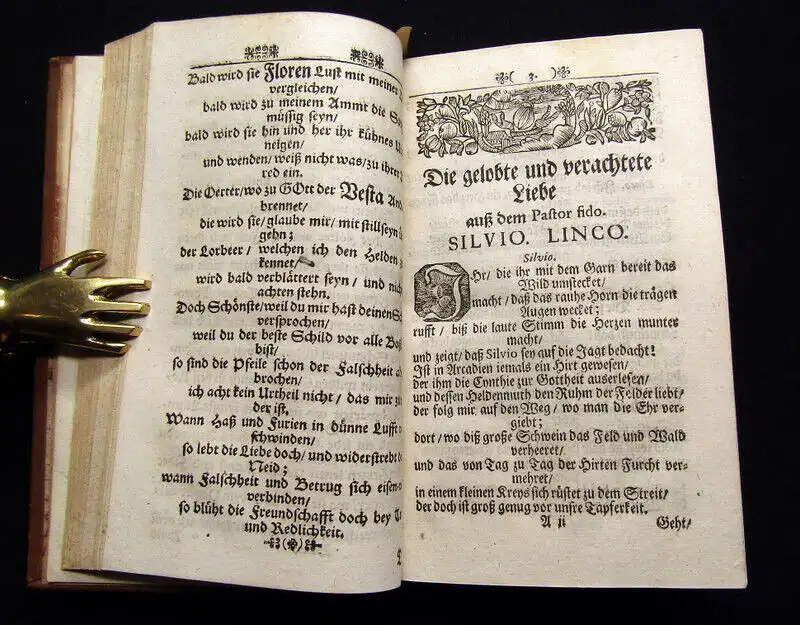 Bald wird sie Floren Lust mit meiner
vergleichen/
bald wird zu meinem Ammt die
müssig seyn/
bald wird sie hin und her ihr kühnes
neigen/
und wenden/ weiß nicht was/ zu ihrer
red ein.
Die Oerter/ wo zu GOtt der Vesta
brennet/
die wird sie/ glaube mir/ mit stillseyn
gehn;
der Lorbeer/ welchen ich den Helden
kennet/
wird bald verblättert seyn/ und nich
achten stehn.
Doch Schönste/ weil du mir hast deinen
versprochen/
weil du der beste Schild vor alle
bist/
so sind die Pfeile schon der Falschheit
brochen/
ich acht kein Urtheil nicht/ das mir
der ist.
Wann Haß und Furien in dünne Lufft
schwinden/
so lebt die Liebe doch/ und widerstrebt
Neid;
wann Falschheit und Betrug sich eisen-
verbinden/
so blüht die Freundschafft doch bey
und Redlichkeit.
( 3. )
Die gelobte und verachtete
Liebe
auß dem Pastor fido.
SILVIO. LINCO.
Silvio.
Ihr/ die ihr mit dem Garn bereit das
Wild umstecket/
macht/ daß das rauhe Horn die trägen
Augen wecket;
rufft/ biß die laute Stimm die Herzen munter
macht/
und zeigt/ daß Silvio sey auf die Jagt bedacht!
Ist in Arcadien iemals ein Hirt gewesen/
der ihm die Cynthie zur Gottheit auserlesen/
und dessen Heldenmuth den Ruhm der Felder liebt/
der folg mir auf den Weg/ wo man die Ehr ver-
giebt;
dort/ wo diß große Schwein das Feld und Wald
verheeret/
und das von Tag zu Tag der Hirten Furcht ver-
mehret/
in einem kleinen Kreys sich rüstet zu dem Streit/
der doch ist groß genug vor unsre Tapferkeit.
A ij
Geht/